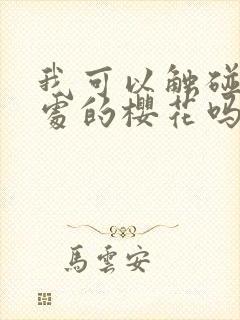 我可以触碰
処的櫻花吗
馬雲安